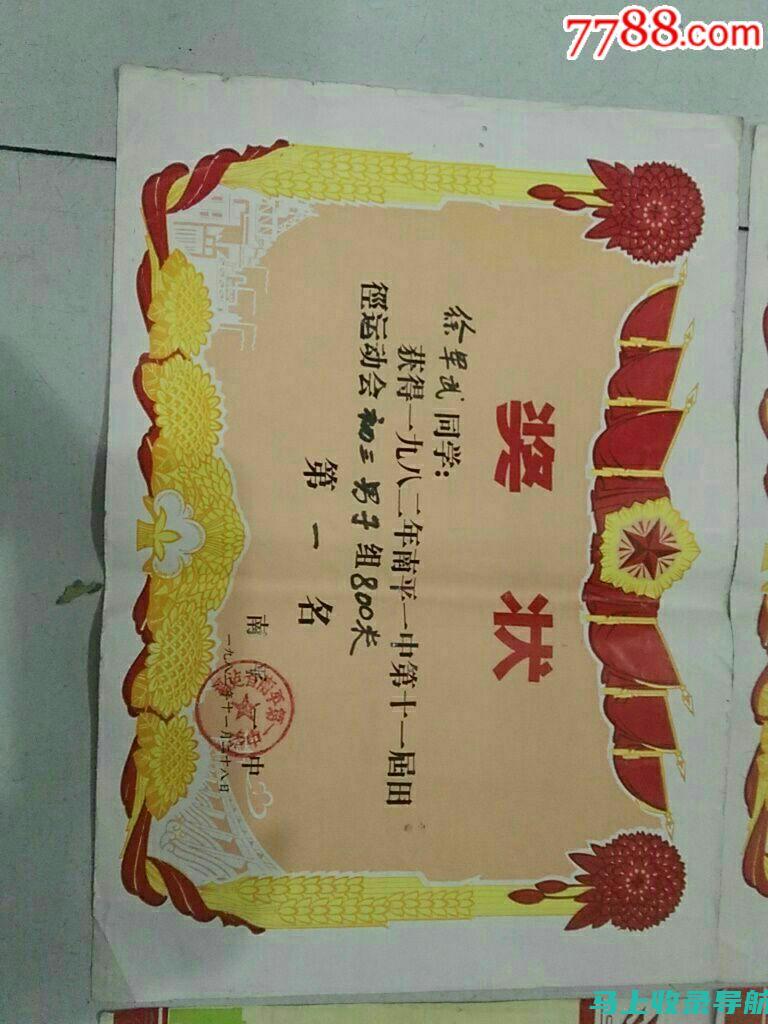 7788.com
奖状
徐军武同学:
获得一九八二年南平一中第十一届田
径运动会初三男子组800米
第一名
南平一中
一九八二年十一月二十八日
马上收录导航